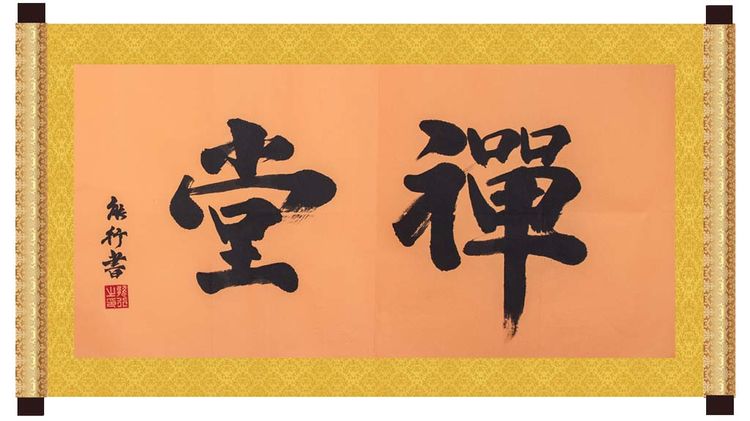 禪堂
能行書